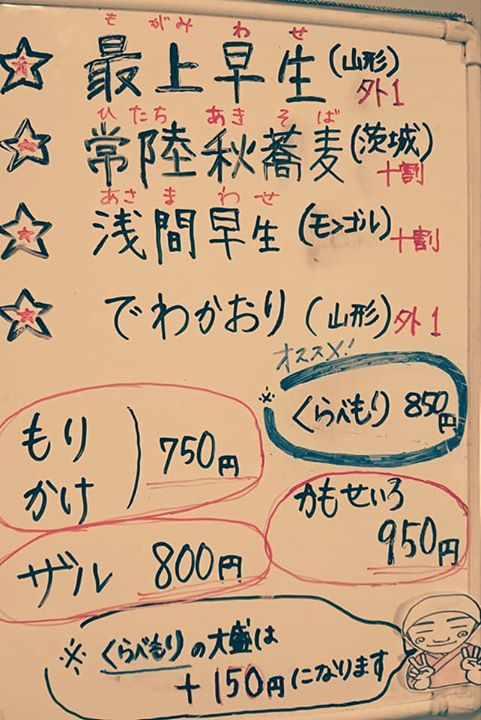 もがみ わせ
最上早生(山形)
外1
ひたち あき そば
常陸秋蕎麦(茨城)
十割
あさま わせ
浅間早生(モンゴル)十割
でわかおり(山形)外1
オススメ!
※くらべもり 850円
もり
かけ
750円
かもせいろ
950円
ザル 800円
※くらべもりの大盛は
+150円になります